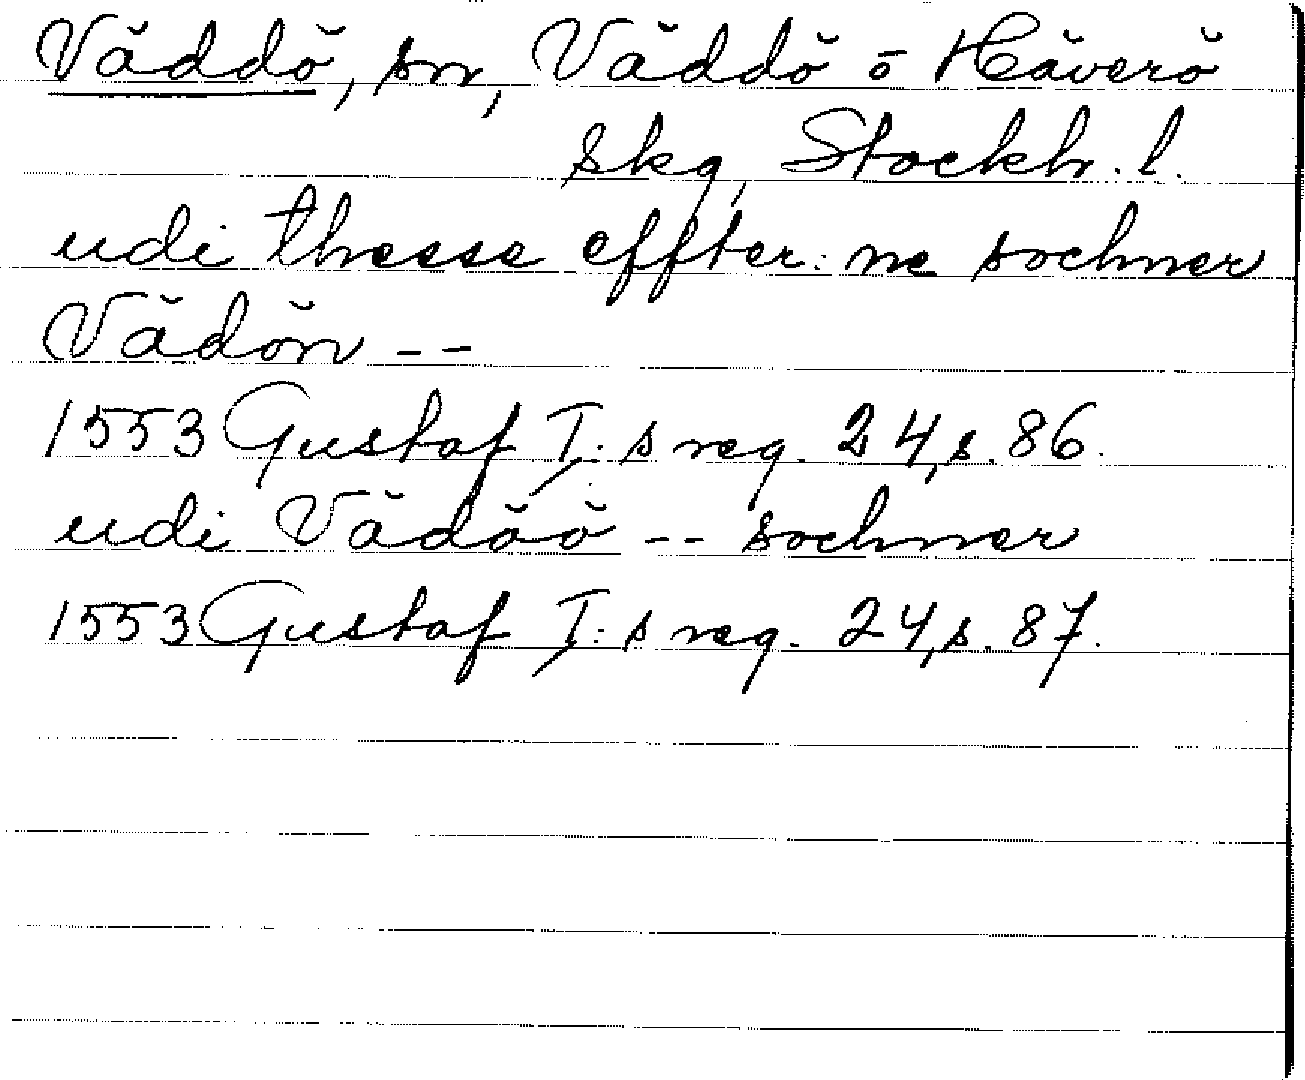 Väddö, sn, Väddö o Häverö
skg, Stockh. l.
udi thesse effter: ne sochner
Vädön --
1553 Gustaf I: s reg. 24, s. 86.
udi Vädöö -- sochner
1553 Gustaf I: s reg. 24, s. 87.